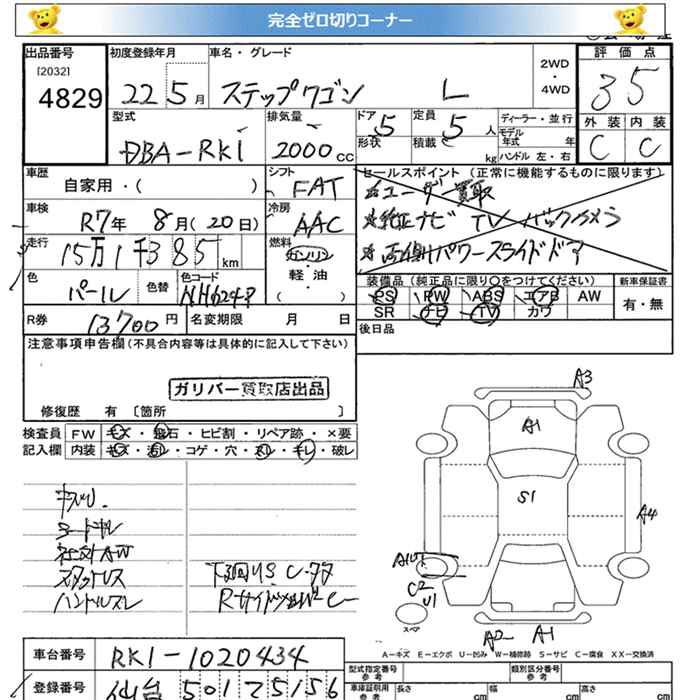 完全ゼロ切りコーナー
出品番号
[2032]
4829
初度登録年月
22 5月
車名・グレード
ステップワゴン L
2WD
・
4WD
評価点
3 5
型式
DBA-RK1
排気量
2000 cc
ドア 5
形状
定員 5 人
積載 kg
ディーラー・並行
モデル
年式 年
ハンドル 左・右
外装 内装
C C
車歴
自家用・( )
シフト
FAT
セールスポイント (正常に機能するものに限ります)
ユーザー買取
純正ナビ TV バックカメラ
両側パワースライドドア
車検
R7年 8月(20日)
冷房
AAC
走行
15万1千385km
燃料
ガソリン
軽・油
( )
色
パール
色替
色コード
NH624P
装備品 (純正品に限り○をつけてください)
PS PW ABS エアB AW
SR ナビ TV カワ
新車保証書
有・無
R券
13700円
名変期限 月 日
後日品
注意事項申告欄(不具合内容等は具体的に記入して下さい)
ガリバー買取店出品
修復歴 有 〔箇所 〕
検査員 FW キズ・飛石・ヒビ割・リペア跡・×要
記入欄 内装 キズ・汚レ・コゲ・穴・スレ・キレ・破レ
ハンドルスレ
下回りS C・ササ
A3
A1
S1
A4
C2
U1
スペア
A2 A1
A-キズ E-エクボ U-凹み W-補修跡 S-サビ C-腐食 XX-交換済
車台番号
RK1-1020434
登録番号
仙台 501 て 5156
型式指定番号
参考
類別区分番号
参考
車庫証明用
参考
長さ cm
幅 cm
高さ cm